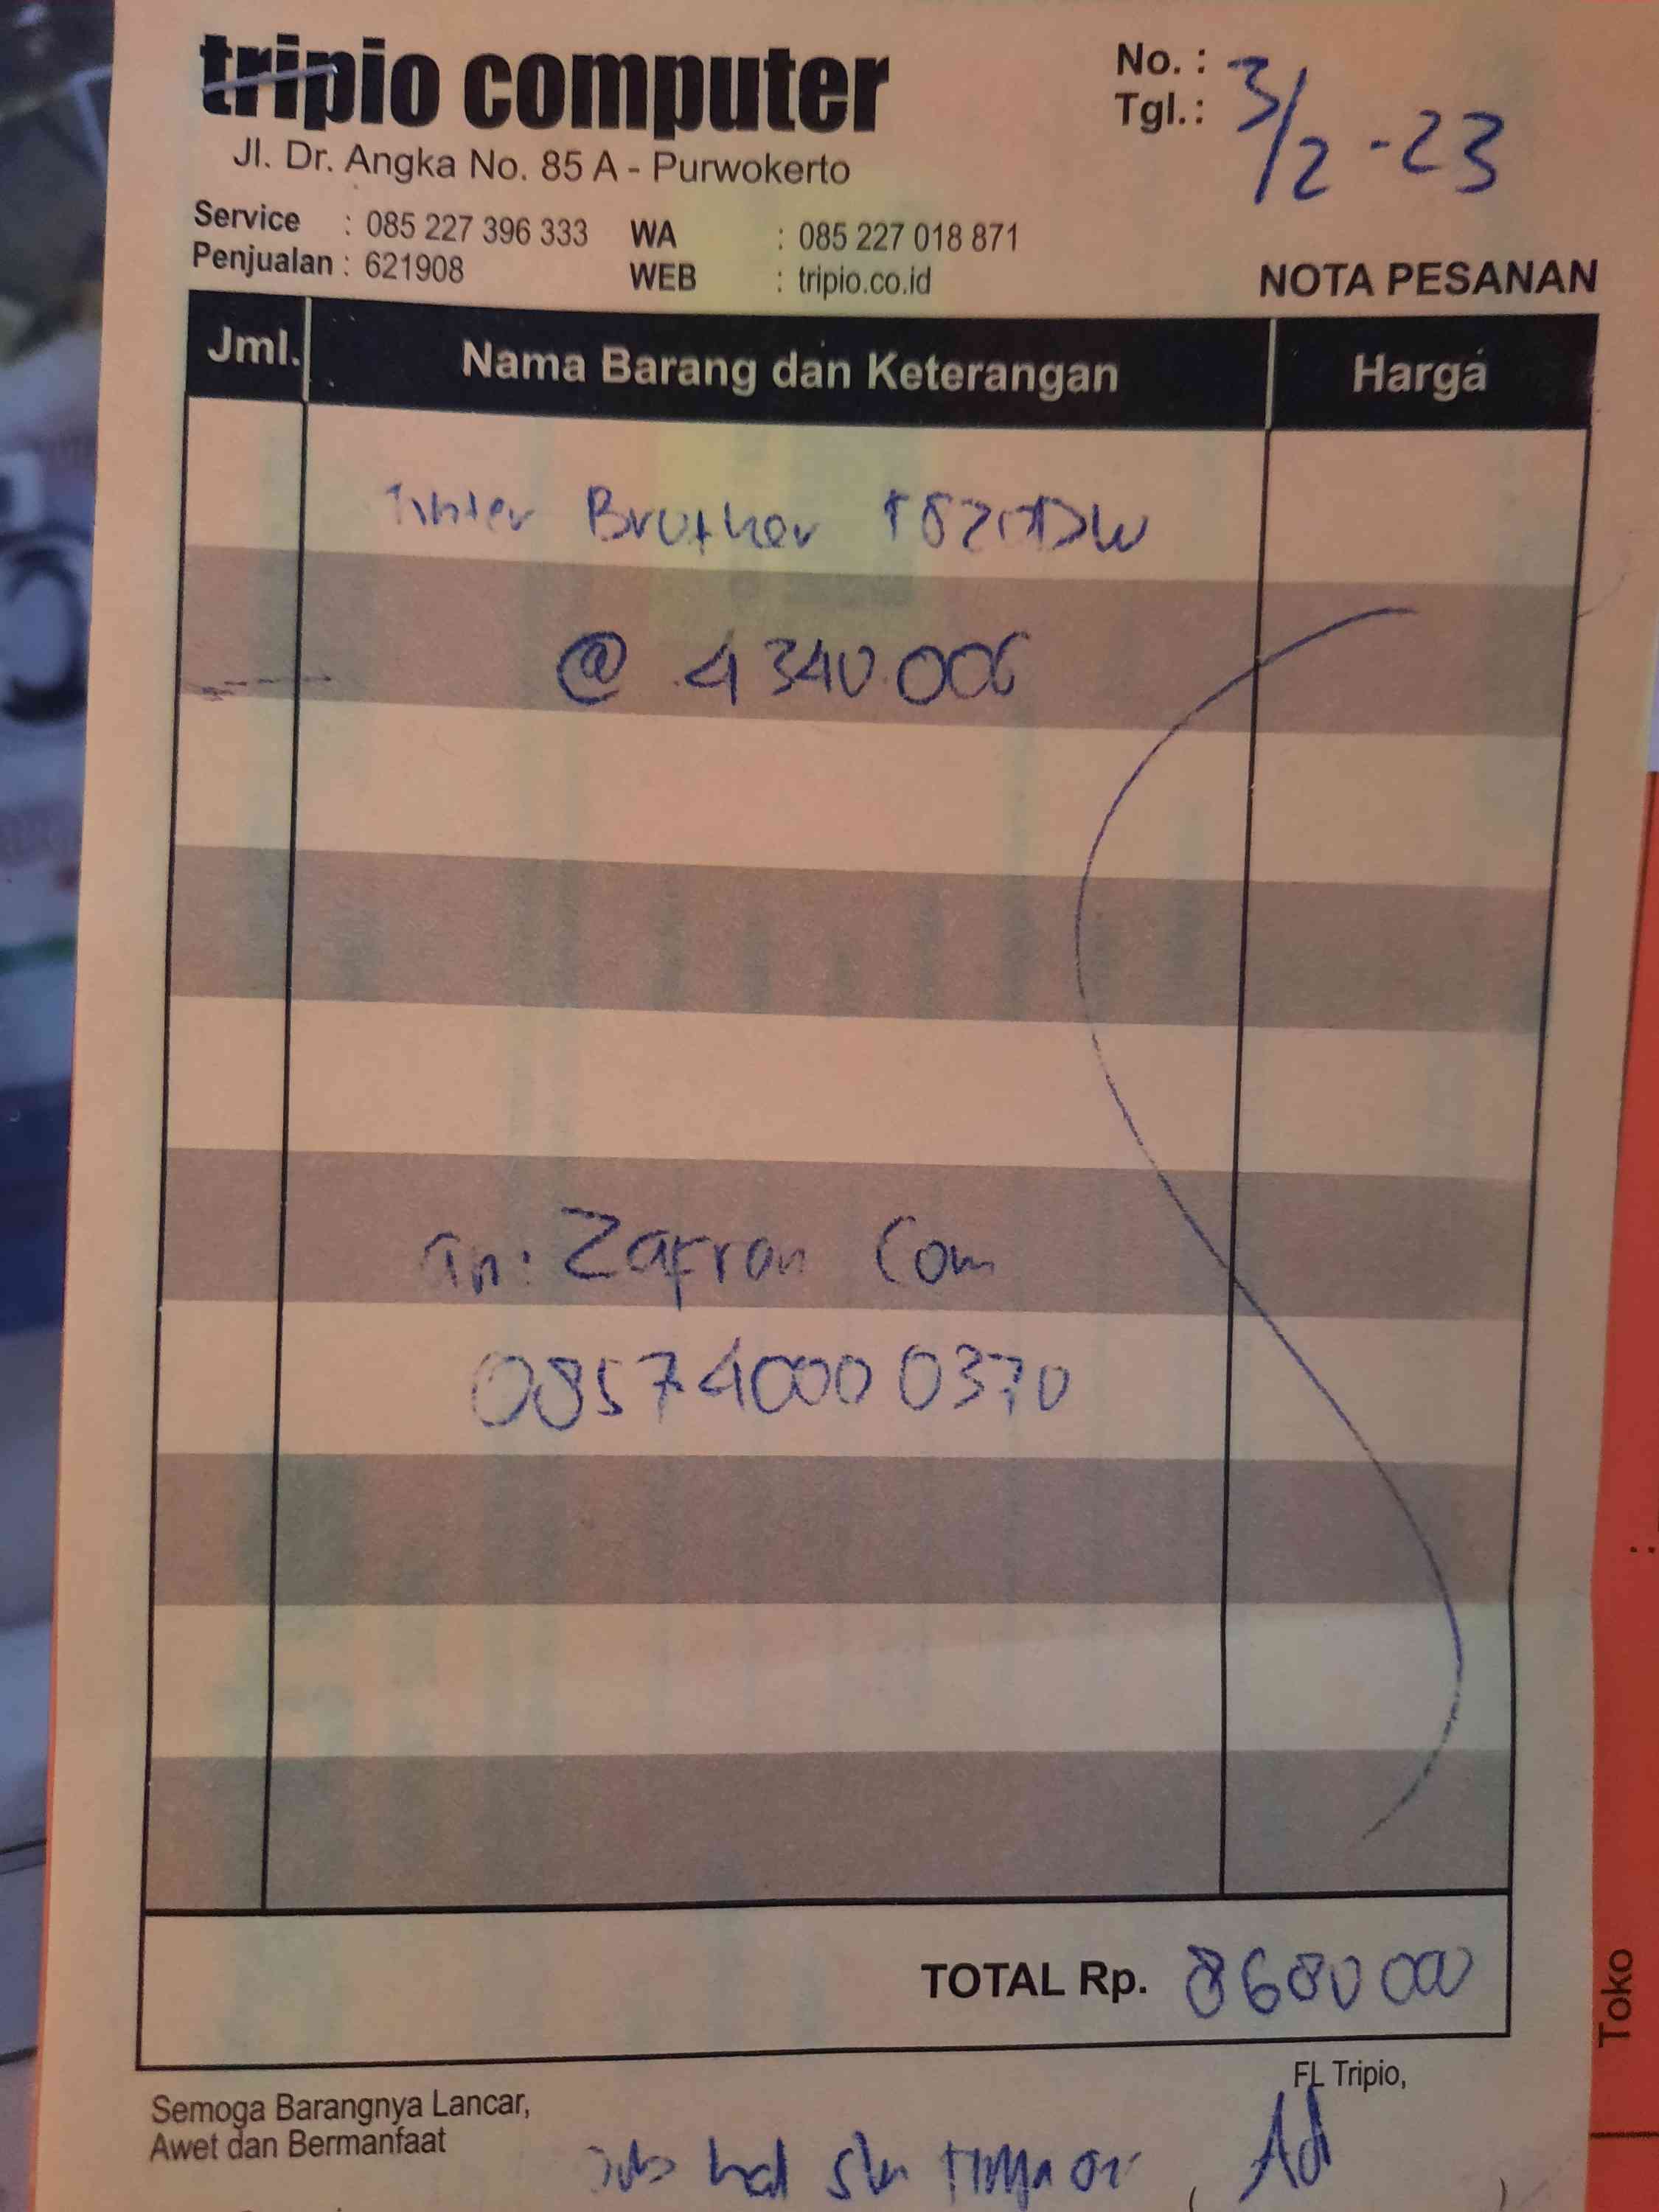 tripio computer
Jl. Dr. Angka No. 85 A - Purwokerto
No. :
Tgl. : 3/2 -23
Service : 085 227 396 333 WA : 085 227 018 871
Penjualan : 621908 WEB : tripio.co.id
NOTA PESANAN
Jml. Nama Barang dan Keterangan Harga
Brother
@ 4340.000
an: Zafran Com
085740000370
TOTAL Rp. 8680000
Semoga Barangnya Lancar,
Awet dan Bermanfaat
FL Tripio,
Toko